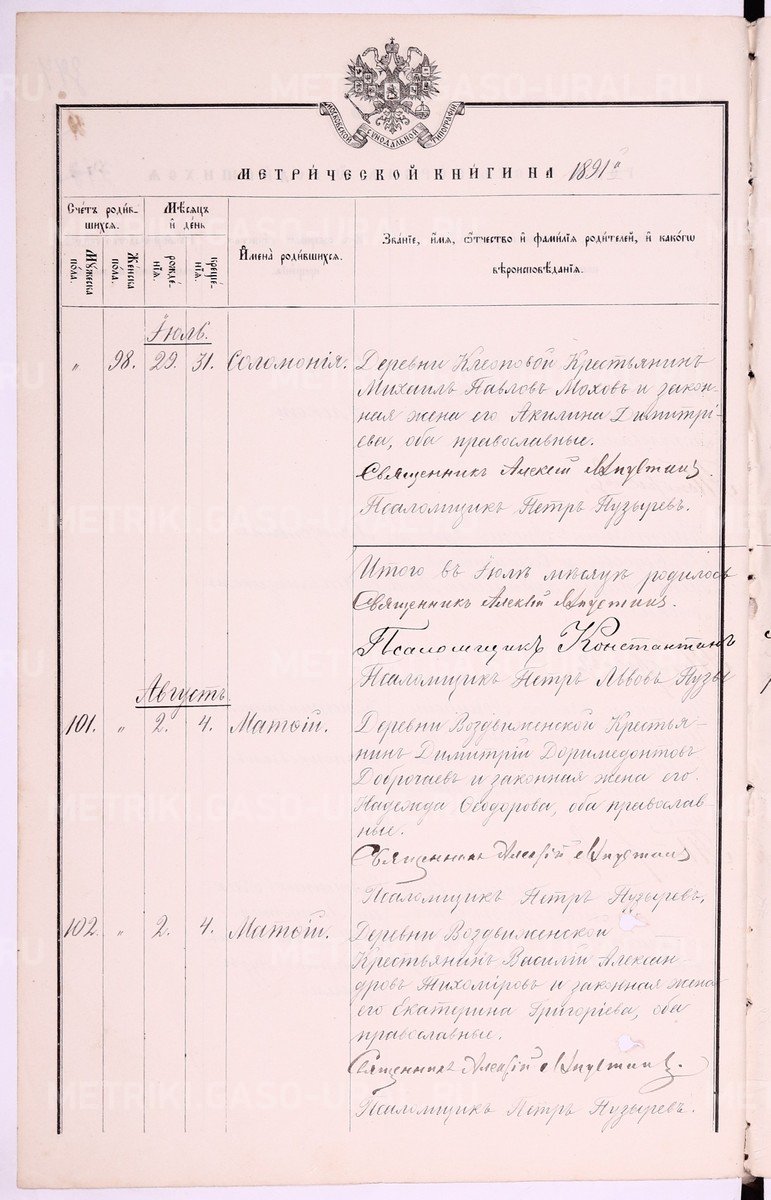 МОСКОВСКОЙ СѴНОДАЛЬНОЙ ТИПОГРАФІИ
МЕТРИ́ЧЕСКОЙ КНИ́ГИ НА 1891 г.
Сче́тъ роди́в-
шихся.
Мѣ́сяцъ
и҆ де́нь
И҆мена̀ роди́вшихся.
Зва́нїе, и҆́мя, ѻ҆́тчество и҆ фами́лїя роди́телей, и҆ како́гѡ
вѣроисповѣ́данїя.
Мꙋ́жеска по́ла.
Же́нска по́ла.
рожде́нїя.
креще́нїя.
Іюль.
„ 98. 29. 31. Соломонія.
Деревни Клеоповой Крестьянинъ
Михаилъ Павловъ Моховъ и закон-
ная жена его Акилина Димитрі-
ева, оба православные.
Священникъ Алексій
Псаломщикъ Петръ Пузыревъ.
Итого въ Іюлѣ мѣсяцѣ родилось
Священникъ Алексій
Псаломщикъ Константинъ
Псаломщикъ Петръ Львовъ Пузы
Августъ.
101. „ 2. 4. Матѳій.
Деревни Воздвиженской Крестья-
нинъ Димитрій Доримедонтовъ
Доброчаевъ и законная жена его
Надежда Ѳеодорова, оба православ-
ные.
Священникъ Алексій
Псаломщикъ Петръ Пузыревъ.
102. „ 2. 4. Матѳій.
Деревни Воздвиженской
Крестьянинъ Василій Алексан-
дровъ Тихоміровъ и законная жена
его Екатерина Григоріева, оба
православные.
Священникъ Алексій
Псаломщикъ Петръ Пузыревъ.
METRIKI.GASO-URAL.RU